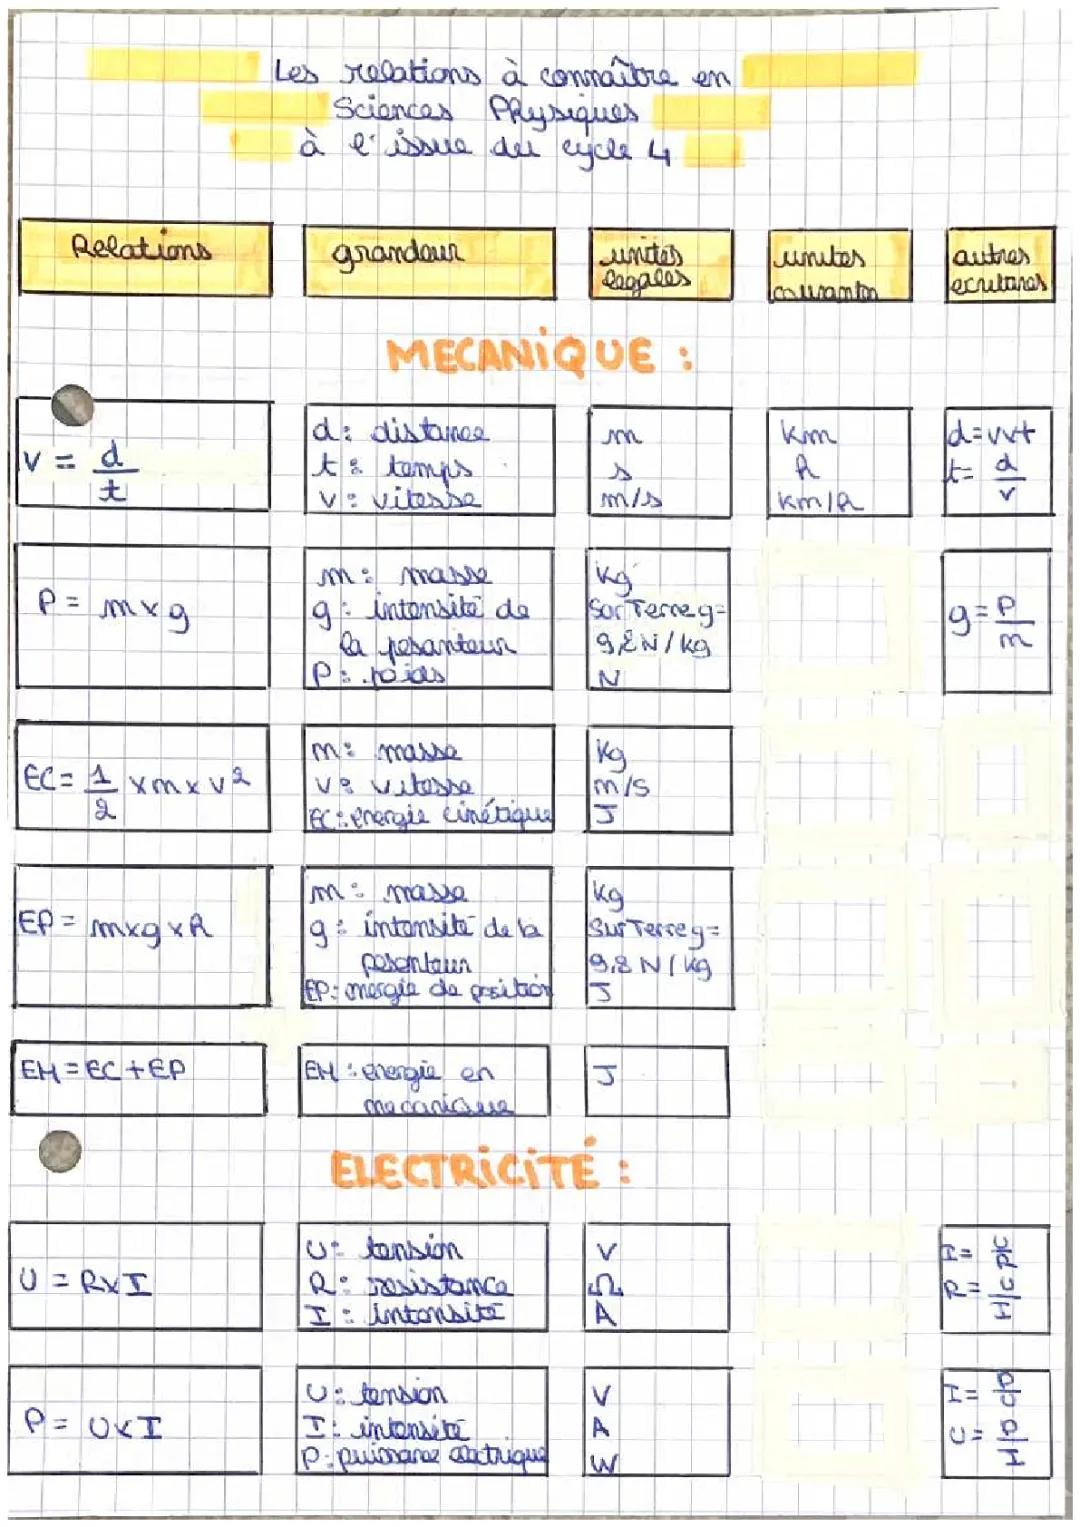 Les relations à connaître en
Sciences Physiques
à l'issue du cycle 4
Relations
grandeur
unités
legales
unites
courantes
autres
ecritures
MECANIQUE :
v = d/t
d: distance
t: temps
v: vitesse
m
s
m/s
km
h
km/h
d=vxt
t= d/v
P = m x g
m: masse
g: intensité de
la pesanteur
P: poids
Kg
Sur Terre g=
9,8 N/kg
N
g= P/m
EC= 1/2 x m x v²
m: masse
v: vitesse
EC: energie cinétique
Kg
m/s
J
EP = mxgxh
m: masse
g: intensité de la
pesanteur
EP: energie de position
Kg
Sur Terre g=
9,8 N/kg
J
EM = EC + EP
EM: energie en
mecanique
J
ELECTRICITÉ :
U = RxI
U: tension
R: resistance
I: intensité
V
Ω
A
R= U/I
P = UxI
U: tension
I: intensité
P: puissance electrique
V
A
W
I= P/U
U= P/I